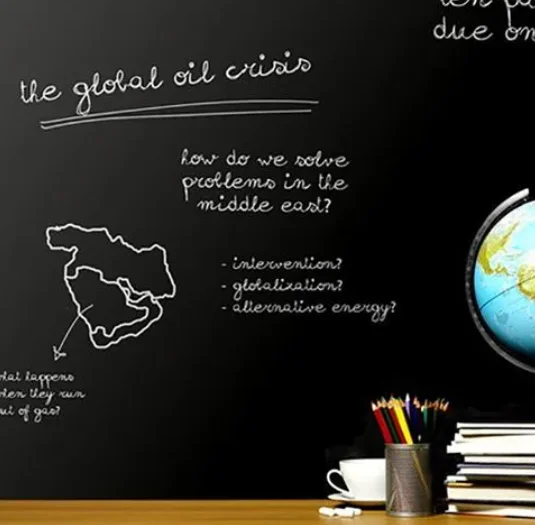 ten pa
due on
the global oil crisis
how do we solve
problems in the
middle east?
- intervention?
- globalization?
- alternative energy?
hat happens
hen they run
ut of gas?